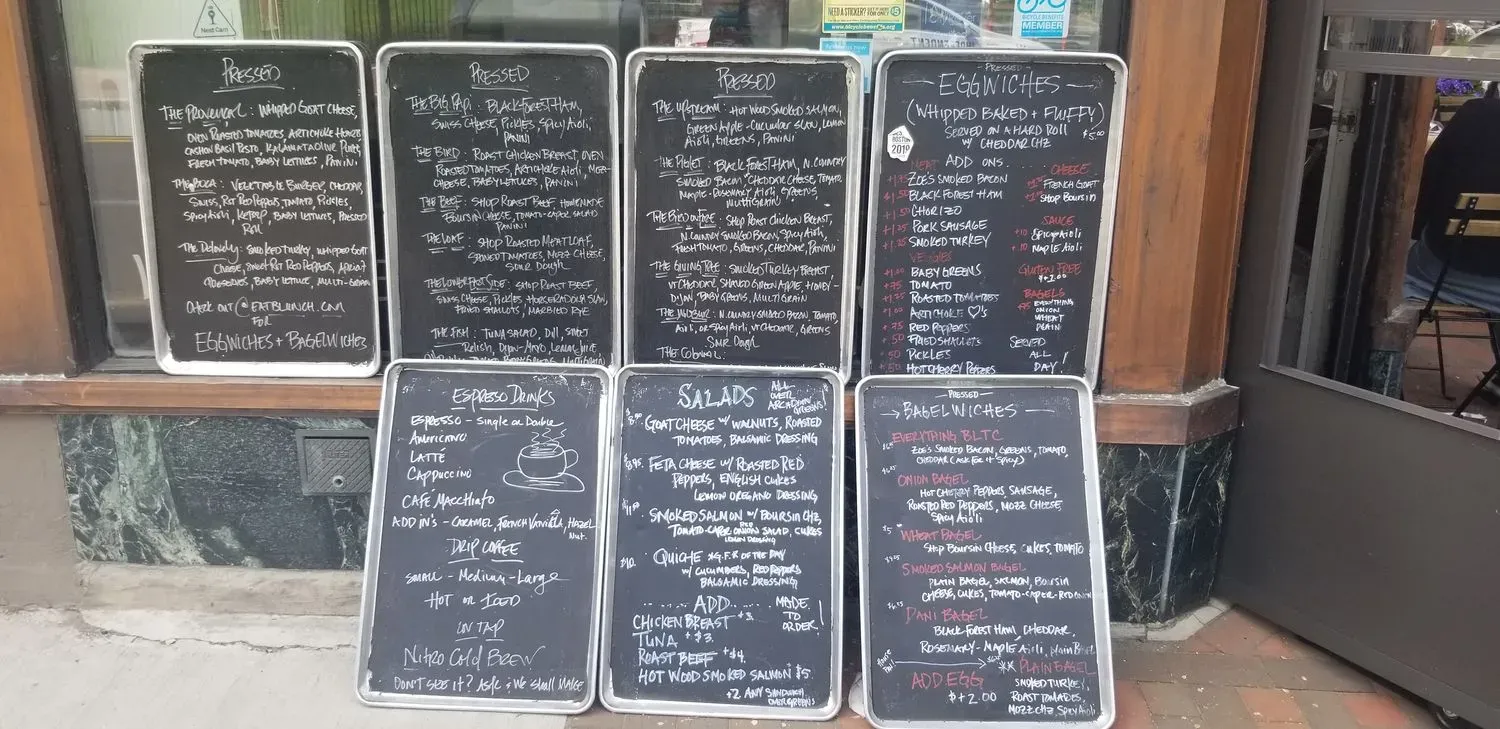 Nest Cam
NEED A STICKER? GET IT HERE FOR ONLY $5
www.bicyclebenefits.org
BICYCLE BENEFITS
MEMBER
PRESSED
THE PROVENCAL: WHIPPED GOAT CHEESE,
OVEN ROASTED TOMATOES, ARTICHOKE HEARTS
CASHEW BASIL PESTO, KALAMATA OLIVE PUREE,
FRESH TOMATO, BABY LETTUCES, PANINI
VEGETABLE BURGER, CHEDDAR,
SWISS, RST RED PEPPERS, TOMATO, PICKLES,
SPICY AIOLI, KETCHUP, BABY LETTUCES, PRESSED
ROLL
THE DELANCEY: SMOKED TURKEY, WHIPPED GOAT
CHEESE, SWEET RST RED PEPPERS, APRICOT
PRESERVES, BABY LETTUCE, MULTI-GRAIN
CHECK OUT @ EATBLUNCH.COM
FOR
EGGWICHES + BAGELWICHEZ
PRESSED
THE BIG PAPI: BLACK FOREST HAM,
SWISS CHEESE, PICKLES, SPICY AIOLI,
PANINI
THE BIRD: ROAST CHICKEN BREAST, OVEN
ROASTED TOMATOES, ARTICHOKE AIOLI, MOZZ
CHEESE, BABY LETTUCES, PANINI
THE BEEF: SHOP ROAST BEEF, HOMEMADE
BOURSIN CHEESE, TOMATO-CAPER SALAD
PANINI
THE LOAF: SHOP ROASTED MEATLOAF,
STEWED TOMATOES, MOZZ CHEESE,
SOUR DOUGH
THE LOWER EAST SIDE: SHOP ROAST BEEF,
SWISS CHEESE, PICKLES, HORSERADDISH SLAW,
FRIED SHALLOTS, MARBLED RYE
THE FISH: TUNA SALAD, DILL, SWEET
RELISH, DIJON-MAYO, LEMON JUICE
PRESSED
THE UPSTREAM: HOT WOOD SMOKED SALMON,
GREEN APPLE-CUCUMBER SLAW, LEMON
AIOLI, GREENS, PANINI
THE PIGLET: BLACK FOREST HAM, N. COUNTRY
SMOKED BACON, CHEDDAR CHEESE, TOMATO
MAPLE-ROSEMARY AIOLI, GREENS
MULTIGRAIN
THE BIRD ON FIRE: SHOP ROAST CHICKEN BREAST,
N. COUNTRY SMOKED BACON, SPICY AIOLI,
FRESH TOMATO, GREENS, CHEDDAR, PANINI
THE GIVING TREE: SMOKED TURKEY BREAST,
VT CHEDDAR, SHAVED GREEN APPLE, HONEY-
DIJON, BABY GREENS, MULTI GRAIN
N. COUNTRY SMOKED BACON, TOMATO,
AIOLI, OR SPICY AIOLI, VT CHEDDAR, GREENS
SOUR DOUGH
THE COLONIAL:
PRESSED
EGGWICHES
(WHIPPED BAKED + FLUFFY)
SERVED ON A HARD ROLL $5.00
W/ CHEDDAR CHZ
BOSTON
2019
MEAT ADD ONS
ZOE'S SMOKED BACON
+1.50 BLACK FOREST HAM
+1.50 CHORIZO
+1.25 PORK SAUSAGE
+1.25 SMOKED TURKEY
VEGGIES
+1.00 BABY GREENS
+.75 TOMATO
+1.25 ROASTED TOMATOES
+1.00 ARTICHOKE ♡'S
+.75 RED PEPPERS
+.50 FRIED SHALLOTS
.50 PICKLES
+.50 HOT CHERRY PEPPERS
CHEESE
FRENCH GOAT
SHOP BOURSIN
SAUCE
+.10 SPICY AIOLI
+.10 MAPLE AIOLI
GLUTEN FREE
$+2.00
BAGELS
EVERYTHING
ONION
WHEAT
PLAIN
SERVED
ALL
DAY!
ESPRESSO DRINKS
ESPRESSO - SINGLE OR DOUBLE
AMERICANO
LATTÉ
CAPPUCCINO
CAFÉ MACCHIATO
ADD IN'S - CARAMEL, FRENCH VANILLA, HAZEL
NUT.
DRIP COFFEE
SMALL - MEDIUM - LARGE
HOT OR ICED
ON TAP
NITRO COLD BREW
DON'T SEE IT? ASK & WE SHALL MAKE
SALADS
ALL
OVER
ARCADIAN
GREENS!
GOAT CHEESE W/ WALNUTS, ROASTED
TOMATOES, BALSAMIC DRESSING
FETA CHEESE W/ ROASTED RED
PEPPERS, ENGLISH CUKES
LEMON OREGANO DRESSING
SMOKED SALMON W/ BOURSIN CHZ,
TOMATO-CAPER RED ONION SALAD, CUKES
LEMON DRESSING
$10. QUICHE *G.F.* OF THE DAY
W/ CUCUMBERS, RED PEPPERS
BALSAMIC DRESSING
ADD
MADE
TO
ORDER!
CHICKEN BREAST +3.
TUNA +$3.
ROAST BEEF +$4.
HOT WOOD SMOKED SALMON $5.
+2 ANY SANDWICH
OVER GREENS
PRESSED
→ BAGELWICHES
EVERYTHING BLTC
ZOE'S SMOKED BACON, GREENS, TOMATO,
CHEDDAR (ASK FOR IT SPICY)
ONION BAGEL
HOT CHERRY PEPPERS, SAUSAGE,
ROASTED RED PEPPERS, MOZZ CHEESE
SPICY AIOLI
$5 WHEAT BAGEL
SHOP BOURSIN CHEESE, CUKES, TOMATO
SMOKED SALMON BAGEL
PLAIN BAGEL, SALMON, BOURSIN
CHEESE, CUKES, TOMATO-CAPER-RED ONION
DANI BAGEL
BLACK FOREST HAM, CHEDDAR,
ROSEMARY-MAPLE AIOLI, PLAIN BAGEL
** PLAIN BAGEL
SMOKED TURKEY,
ROAST TOMATOES,
MOZZ CHZ, SPICY AIOLI
ADD EGG
$+2.00